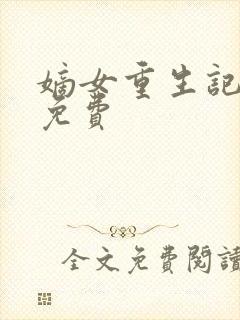 嫡女重生記
免費
全文免費閱讀